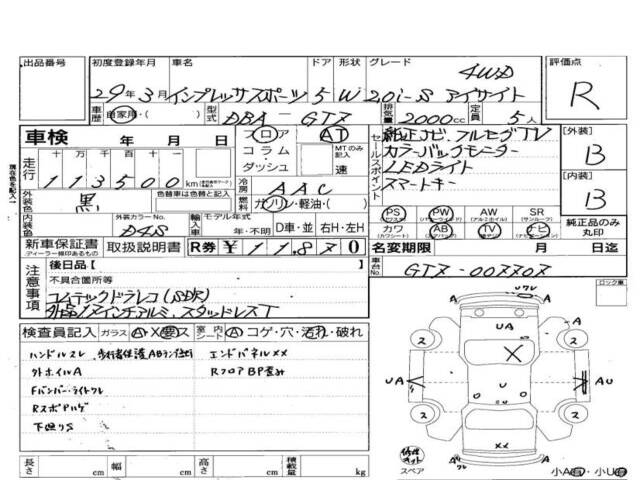 出品番号 初度登録年月 車名 ドア 形状 グレード 評価点
4WD
29年3月 インプレッサスポーツ 5 W 2.0i-S アイサイト R
車歴 自家用・( ) 型式 DBA － GT7 排気量 2000cc 定員 5人
車検 年 月 日 フロア AT 純正ナビ、フルセグTV [外装]
走行 十 万 千 百 十 一 コラム MTのみ記入 セールスポイント カラーバックモニター B
113500 km ダッシュ 速 LEDライト [内装]
現在色を記入 外装色 黒 色替車は色替と記入 冷房 AAC スマートキー B
燃料 ガソリン・軽油・( )
PS PW AW SR 純正品のみ丸印
(パワステ) (パワーウィンドウ) (アルミホイル) (サンルーフ)
内装色 外装カラーNo. D4S 輸入車 モデル年式 年・不明 D車・並 右H・左H カワ AB TV ナビ
(カワシート) (エアバッグ) (テレビ) (ナビ)
新車保証書 取扱説明書 R券 ￥11870 名変期限 月 日迄
ディーラー印あるもの
車台No. GT7-007707
注意事項 後日品[ ] ロック車
不具合箇所等
コムテックドラレコ(SDR)
外品17インチアルミ、スタッドレスT
検査員記入 ガラス A・X・要ス 室内シート A・コゲ・穴・汚れ・破れ
ハンドルスレ 歩行者保護ABランプ点灯 エンドパネルXX
タトホイルA RフロアBP歪み
Fバンパー・ライトワレ
Rスポアルゲ
下廻りS
A Uワレ A
UA
X
UA U AU
2 2
2 2
XX
A ワレ A
修復 キット スペア
小A・小U
長さ cm 幅 cm 高さ cm 積載量 kg